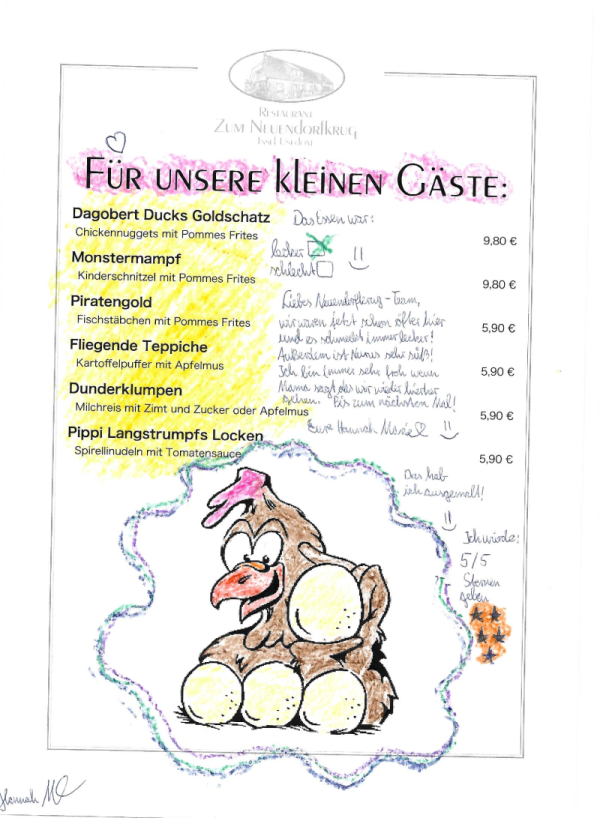 RESTAURANT
ZUM NEUENDORFKRUG
INSEL USEDOM
FÜR UNSERE kleiNEN GÄSTE:
Dagobert Ducks Goldschatz
Das Essen war:
Chickennuggets mit Pommes Frites
9,80 €
lecker
Monstermampf
schlecht
Kinderschnitzel mit Pommes Frites
9,80 €
Piratengold
Fischstäbchen mit Pommes Frites
5,90 €
Fliegende Teppiche
Kartoffelpuffer mit Apfelmus
5,90 €
Dunderklumpen
Milchreis mit Zimt und Zucker oder Apfelmus
5,90 €
Pippi Langstrumpfs Locken
Spirellinudeln mit Tomatensauce
5,90 €
Lieber Neuendorfkrug-Team,
wir waren jetzt schon öfter hier
und es schmeckt immer lecker!
Außerdem ist sehr süß!
Ich bin immer sehr froh wenn
Mama sagt das wir wieder hierher
gehen. Bis zum nächsten Mal!
Eure Hannah Marie
Das hab
ich ausgemalt!
Ich würde:
5/5
Sternen
geben
Hannah